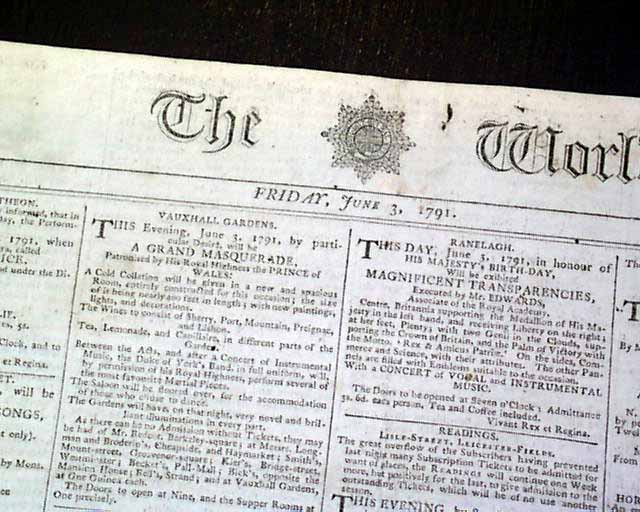 The World
FRIDAY, June 3, 1791.
THEON.
informed, that in
the Perform-
1791, when
called
ICE.
and under the Di-
LIF.
5s.
Clock, and to
et Regina.
ET.
will be
SONGS,
but only).
by Mont.
VAUXHALL GARDENS.
THIS Evening, June 3, 1791, by parti-
cular Desire, will be
A GRAND MASQUERADE,
Patronised by His Royal Highness the PRINCE of
WALES.
A Cold Collation will be given in a new and spacious
Room, entirely constructed for this occasion; the size
of it being nearly 200 feet in length; with new paintings,
lights, and decorations.
The Wines to consist of Sherry, Port, Mountain, Preignac,
and Lisbon.
Tea, Lemonade, and Capillaire, in different parts of the
Garden.
Between the Acts, and after a Concert of Instrumental
Music, the Duke of York's Band, in full uniform, will,
by permission of his Royal Highness, perform several of
the most favourite Martial Pieces.
The Saloon will be floored over, for the accommodation
of those who chuse to dance.
The Gardens will have, on that night, very novel and bril-
liant Illuminations in every part.
As there can be no Admission without Tickets, they may
be had of Mr. Redde, Barkeley-square; at Messrs. Long-
man and Broderip's, Cheapside, and Haymarket; Smith's,
Mount-street, Grosvenor-square; Kerr's, Bridge-street,
Westminster; Becket's, Pall-Mall; Rick's, opposite the
Mansion House; Strand; and at Vauxhall Gardens,
at One Guinea each.
The Doors to open at Nine, and the Supper Rooms at
One precisely.
RANELAGH.
THIS DAY, June 3, 1791, in honour of
HIS MAJESTY's BIRTH-DAY,
Will be exhibited
MAGNIFICENT TRANSPARENCIES,
Executed by Mr. EDWARDS,
Associate of the Royal Academy.
Centre, Britannia supporting the Medallion of His Ma-
jesty in the left hand, and receiving Liberty on the right;
at her feet, Plenty; with two Genii in the Clouds, sup-
porting the Crown of Britain, and the Palm of Victory, with
the Motto, "Rex & Amicus Patriæ." On the sides, Com-
merce and Science, with their attributes. The other Pan-
nels are filled with Emblems suitable to the occasion.
With a CONCERT of VOCAL and INSTRUMENTAL
MUSIC.
The Doors to be opened at Seven o'Clock; Admittance
3s. 6d. each person, Tea and Coffee included.
Vivant Rex et Regina.
READINGS.
LISLE-STREET, LEICESTER-FIELDS.
The great overflow of the Subscribers having prevented
last night many Subscription Tickets to be admitted for
want of places, the READINGS will continue one Week
more, but positively for the last, to give admission to the
outstanding Tickets, which will be of no use another
season.
THIS EVENING,
The
By M
Two
From
HOR